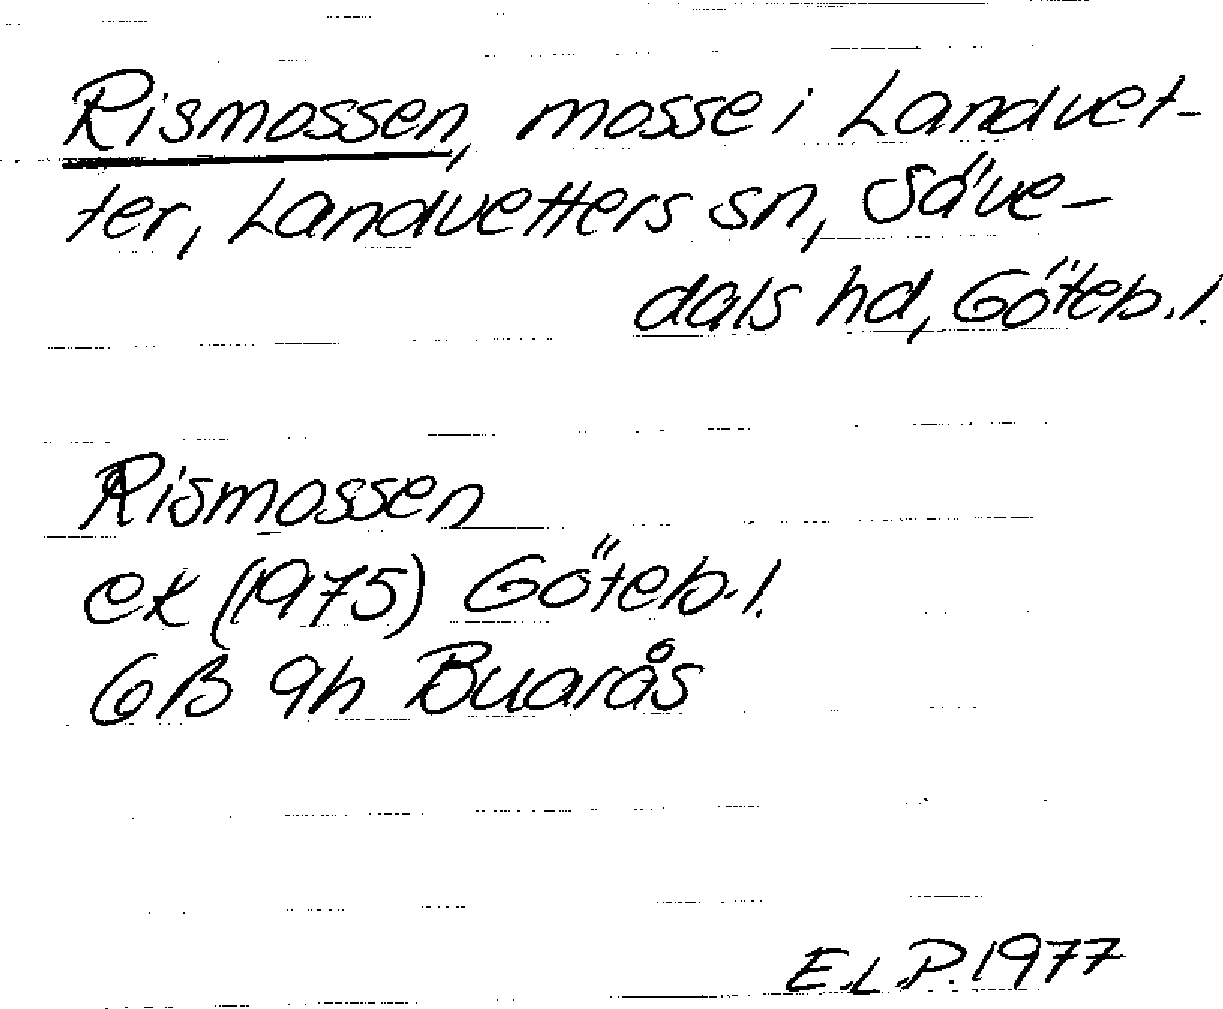 Rismossen, mosse i Landvet-
ter, Landvetters sn, Säve-
dals hd, Göteb. l.
Rismossen
ek (1975) Göteb. l.
6B 9h Buarås
E.L.P. 1977